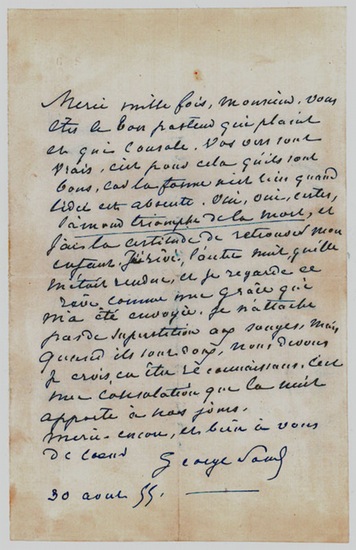 Merci mille fois, monsieur. vous
êtes le bon pasteur qui plaint
et qui console. Vos vers sont
vrais, c'est pour cela qu'ils sont
bons, car la forme n'est rien quand
l'idée est absente. Oui, oui, certes,
l'amour triomphe de la mort, et
j'ai la certitude de retrouver mon
enfant. J'ai rêvé, l'autre nuit, qu'elle
m'était rendue, et je regarde ce
rêve comme une grâce qui
m'a été envoyée. Je n'attache
pas de superstition aux songes, mais
quand ils sont doux, nous devons
je crois, en être reconnaissans. C'est
une consolation que la nuit
apporte à nos jours.
merci encore, et bien à vous
de cœur
George Sand
30 aout 55.